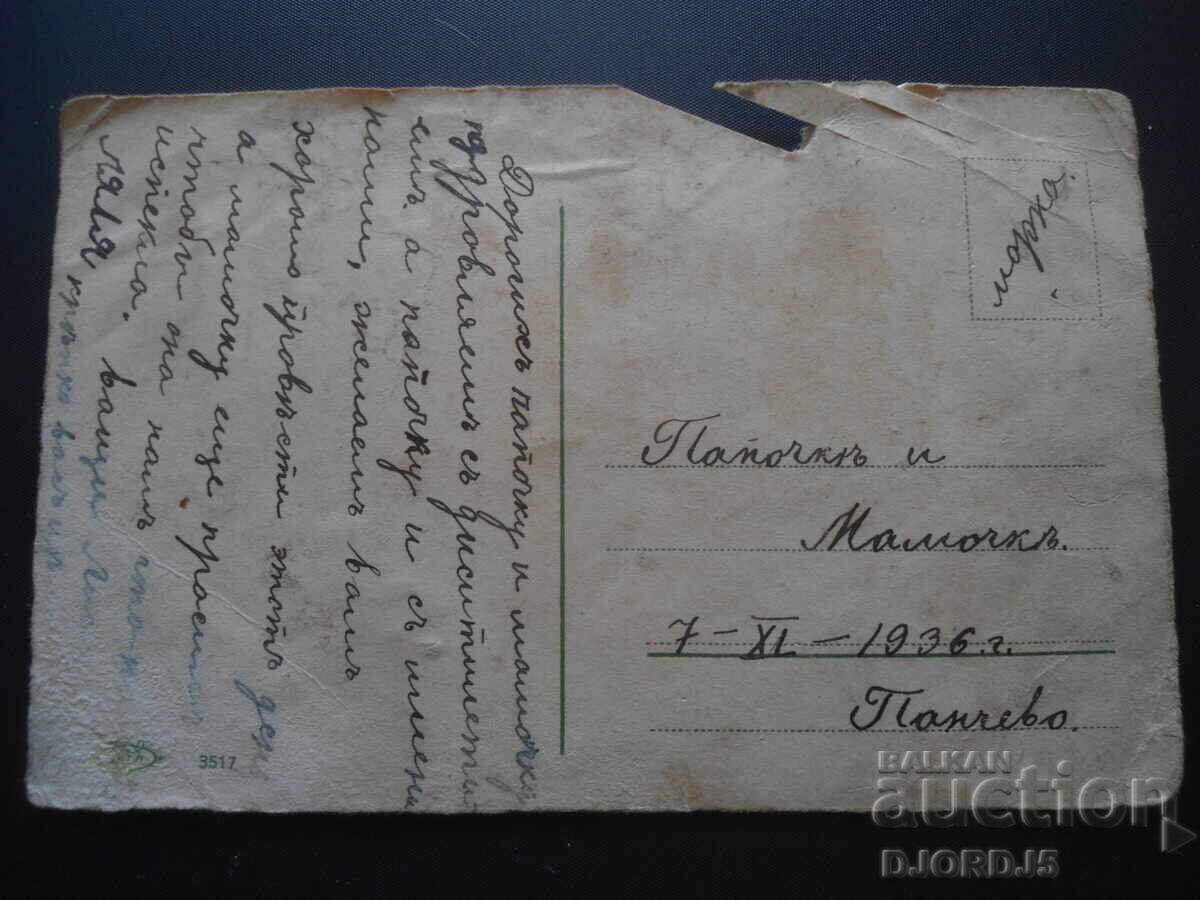 Дорогихъ папочку и мамочку
поздровляемъ съ
емъ а папочку и съ имени
нами, желаемъ вамъ
хорошо провѣсти этотъ день
а мамочку еще просимъ
чтобы она намъ что н
испекла. Ваши
ЛЯЛЯ крѣпко васъ
Папочкѣ и
Мамочкѣ.
7-XI-1936 г.
Панчево.
3517
BALKAN
auction
DJORDJ5